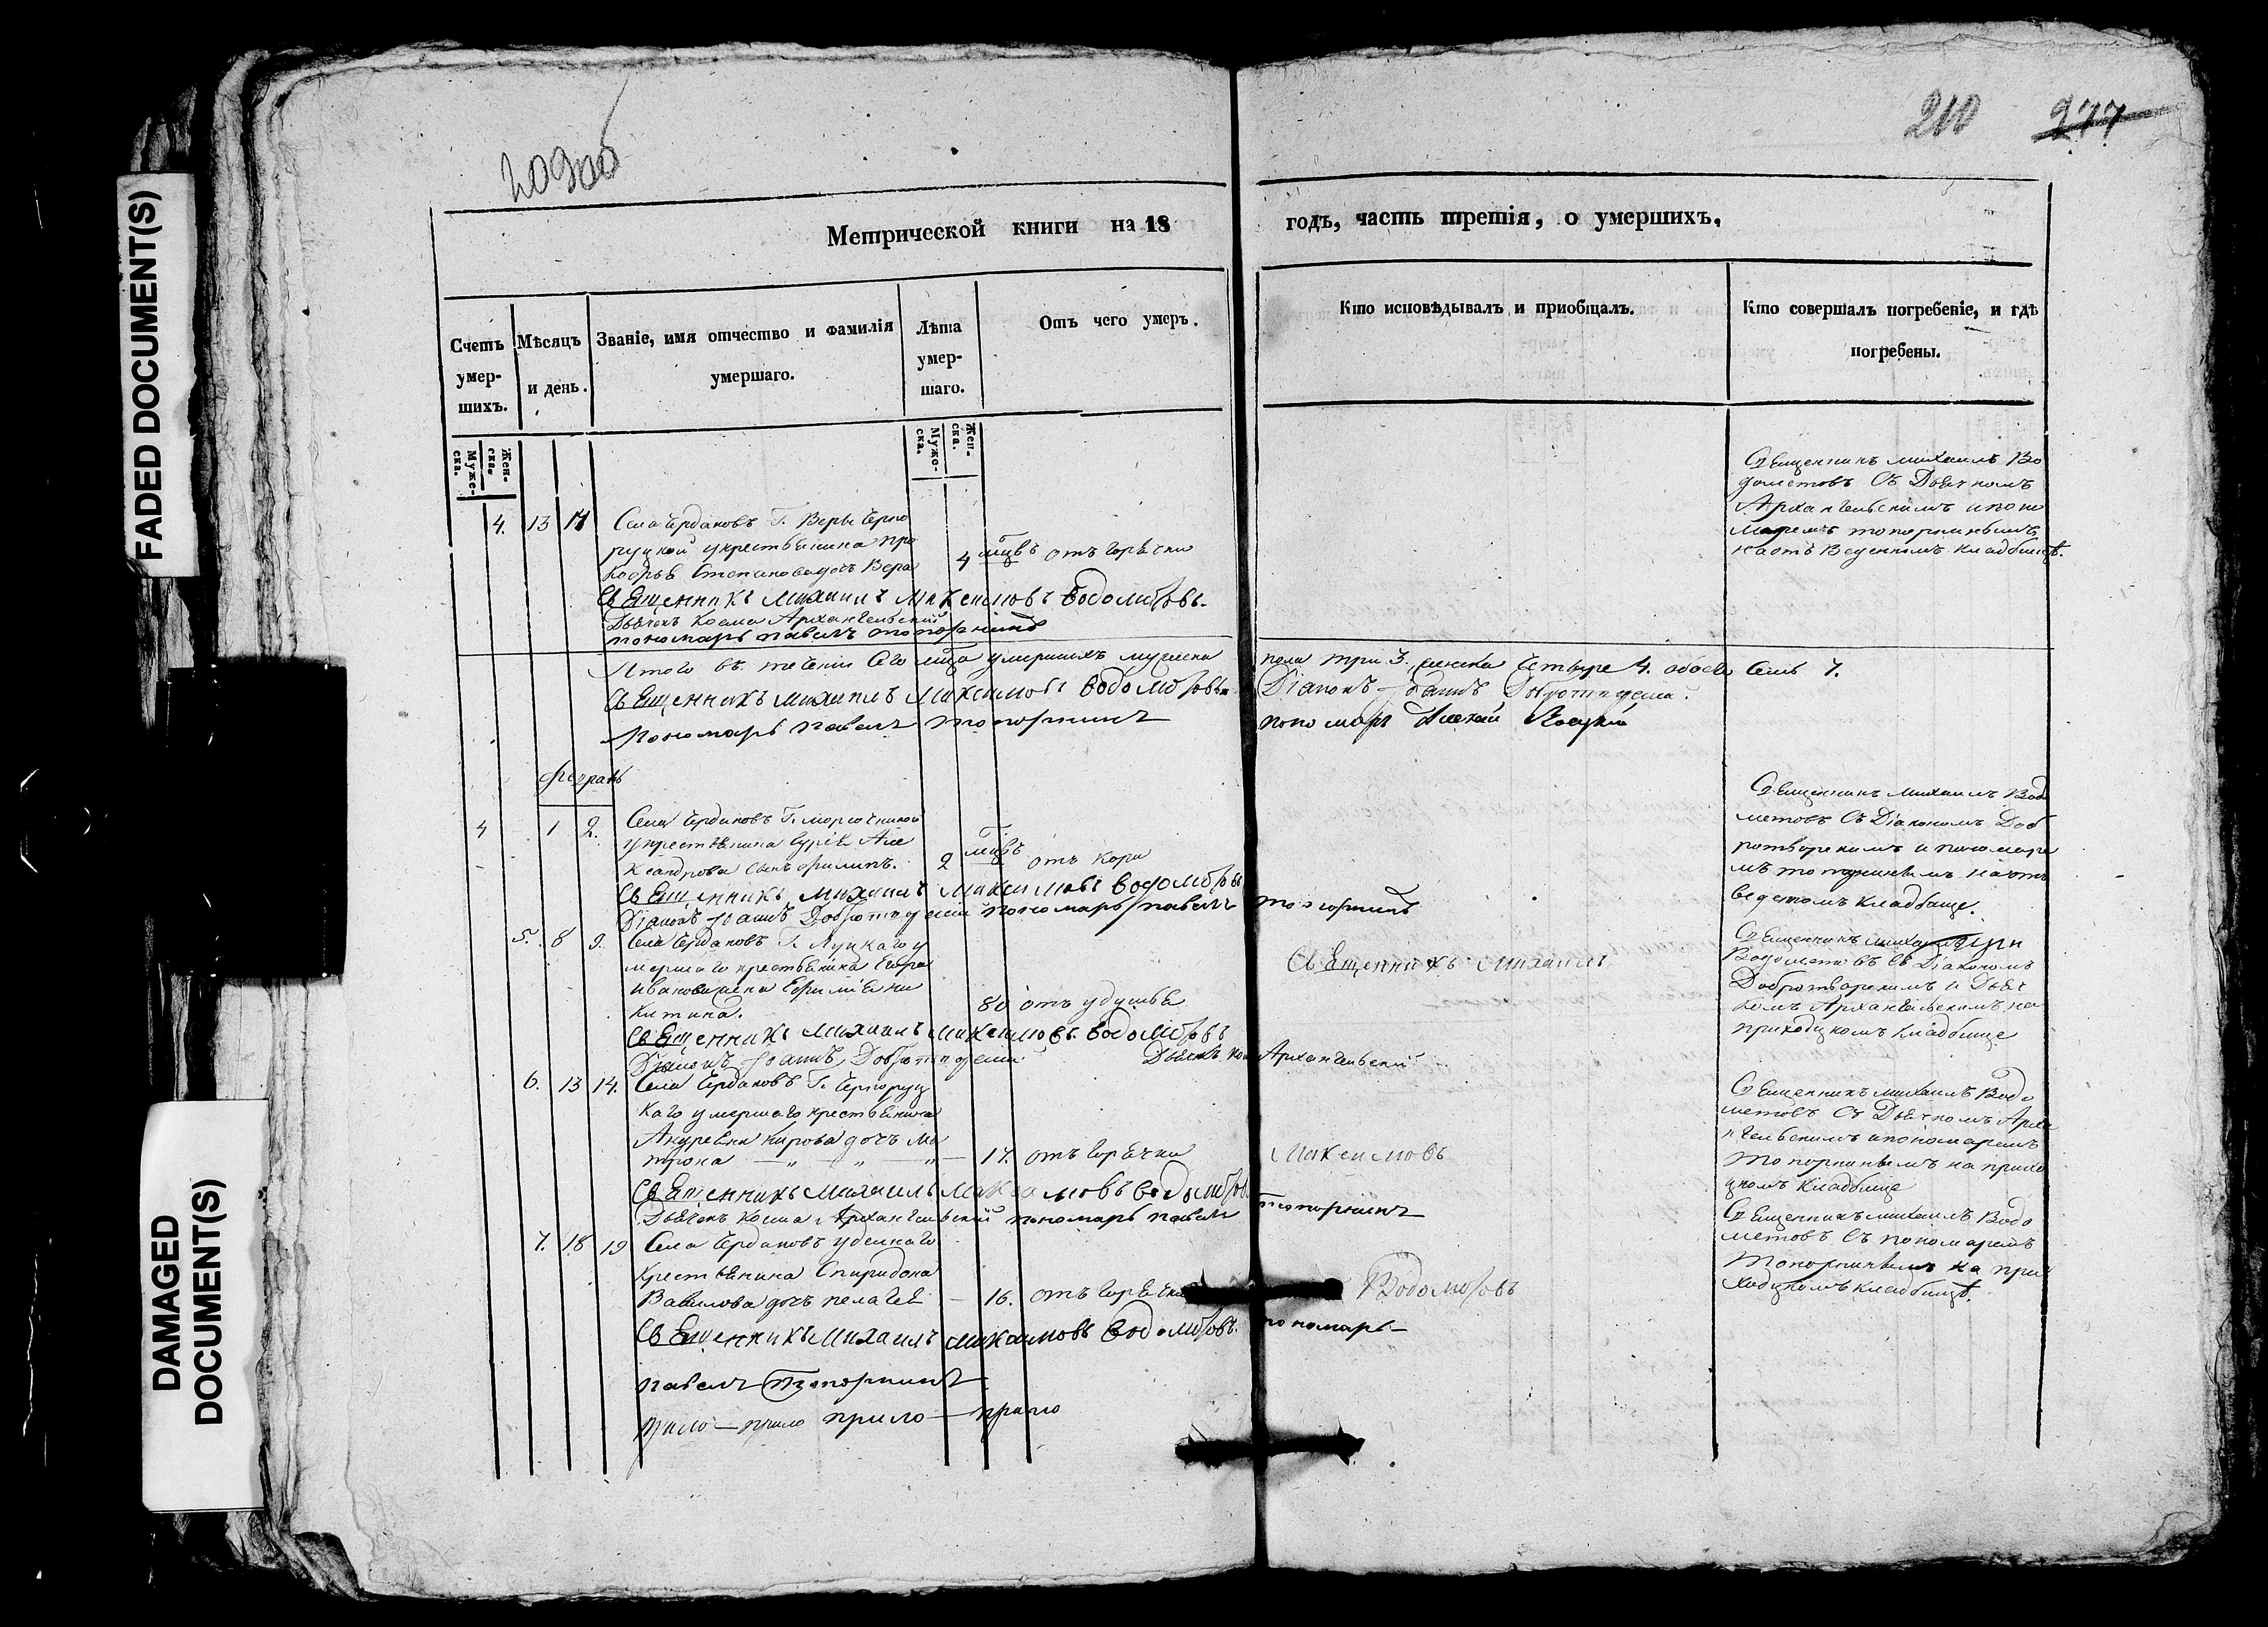 FADED DOCUMENT(S)
DAMAGED
DOCUMENT(S)
209об
210 277
Метрической книги на 18
годъ, часть третія, о умершихъ.
Счетъ умер-шихъ.
Мѣсяцъ и день.
Званіе, имя отчество и фамилія умершаго.
Лѣта умер-шаго.
Отъ чего умеръ.
Кто исповѣдывалъ и пріобщалъ.
Кто совершалъ погребеніе, и гдѣ погребены.
Муже-ска.
Жен-ска.
Мужо-ска.
Жен-ска.
4. 13 14 Села Чердаковъ Г. Веры Черно
руцкой у крестьянина Про
кофья Степанова дочь Вера
4 мцвъ отъ горячки
Священникъ Михаилъ Во
дометовъ Съ Дьячкомъ
Архангельскимъ и поно
маремъ топорнинымъ
на отъ Веденномъ кладбищѣ.
Священникъ Михаилъ Максимовъ Водометовъ.
Дьячекъ Косма Архангельскій
пономарь павелъ топорнинъ
Итого въ течении Сего мца умершихъ мужеска
пола три 3. женска Четыре 4. обоего Семь 7.
Священникъ Михаилъ Максимовъ Водометовъ
Діаконъ Іоаннъ
Пономарь павелъ топорнинъ
пономарь
февраль
4 1 2. Села Чердаковъ Г.
у крестьянина Гурья Але
ксандрова сынъ филипъ.
2 мцвъ отъ кори
Священникъ Михаилъ Водо
метовъ Съ Діакономъ Доб
ротворскимъ и пономаре
мъ топорнинымъ на отъ
веденомъ кладбище.
Священникъ Михаилъ Максимовъ Водометовъ
Діаконъ Іоаннъ пономарь павелъ топорнинъ
5. 8 9. Села Чердаковъ Г. Луцкаго у
мершаго крестьянина Егора
Иванова жена Ефимія Ни
китина.
80 отъ удушья
Священникъ Михаилъ
Священникъ
Водометовъ Съ Діакономъ
Добротворскимъ и Дьяч
комъ Архангельскимъ на
приходцкомъ кладбище
Священникъ Михаилъ Максимовъ Водометовъ
Діаконъ Іоаннъ
Дьячекъ Архангельскій
6. 13 14. Села Чердаковъ Г. Черноруц
каго умершаго крестьянина
Андреяна Кирова дочь Ма
трона
17. отъ горячки
Максимовъ
Священникъ Михаилъ Водо
метовъ Съ Дьячкомъ Арха
нгельскимъ и пономаремъ
топорнинымъ на прихо
дцкомъ кладбище
Священникъ Михаилъ Максимовъ Водометов
Дьячекъ Косма Архангельскій пономарь павелъ топорнинъ
7. 18 19 Села Чердаковъ удельнаго
крестьянина Спиридона
Вавилова дочь пелагея
16. отъ горячки
Водометовъ
Священникъ Михаилъ Водо
метовъ Съ пономаремъ
топорнинымъ на при
ходцкомъ кладбищѣ.
Священникъ Михаилъ Максимовъ Водометовъ. пономарь
павелъ топорнинъ